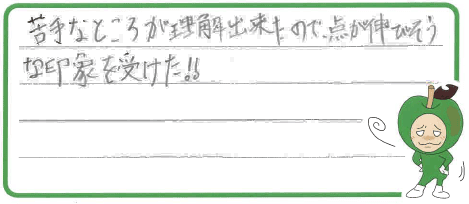 苦手なところが理解出来たので、点が伸びそう
な印象を受けた!!